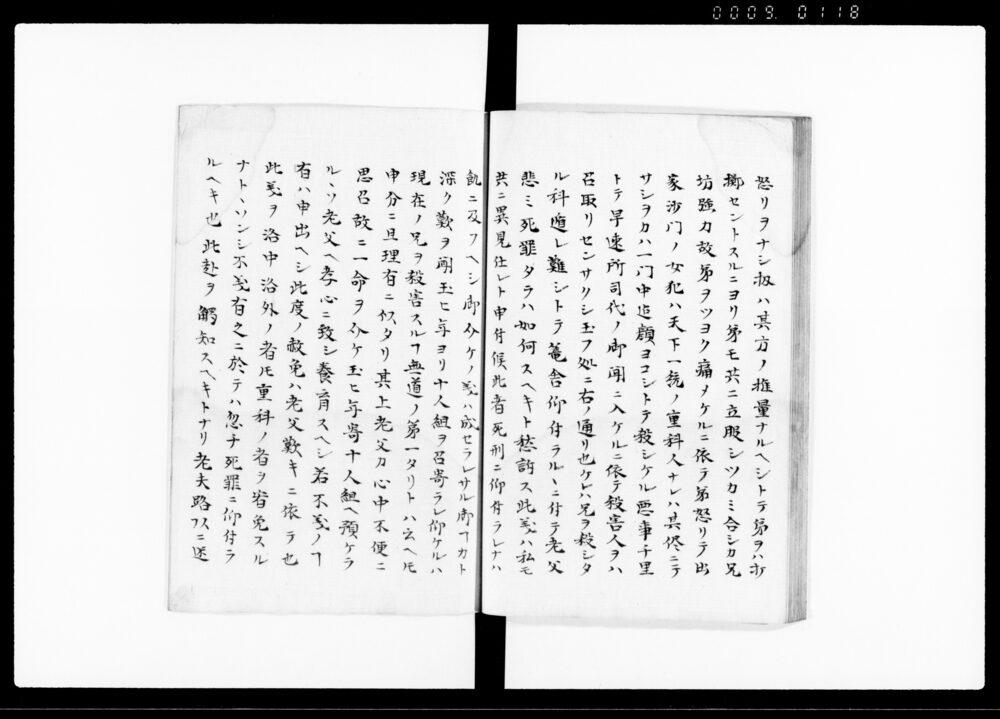 0009. 0118
怒リヲナシ扨ハ其方ノ推量ナルヘシトテ弟ヲハ打
擲セントスルニヨリ弟モ共ニ立服シツカミ合シカ兄
坊強力故弟ヲツヨク痛メケルニ依テ弟怒リテ出
家沙門ノ女犯ハ天下一統ノ重科人ナレハ其侭ニテ
サシヲカハ一門中迄顔ヨコシトテ殺シケル悪事千里
トテ早速所司代ノ御聞ニ入ケルニ依テ殺害人ヲハ
召取リセンサクシ玉フ処ニ右ノ通リ也ケレハ兄ヲ殺シタ
ル科遁レ難シトテ篭舎仰付ラルヽニ付テ老父
悲ミ死罪タラハ如何スヘキト愁訴ス此義ハ私モ
共ニ異見仕レト申付候此者死刑ニ仰付ラレナハ
飢ニ及フヘシ御分ケノ義ハ成セラレサル御ヿカト
深ク歎ヲ聞玉ヒ年ヨリ十人組ヲ召寄ラレ仰ケルハ
現在ノ兄ヲ殺害スルヿ無道ノ第一タリトハ云ヘ𪜈
申分ニ旦理有ニ似タリ其上老父カ心中不便ニ
思召故ニ一命ヲ分ケ玉ヒ年寄十人組ヘ預ケラ
ルヽソ老父ヘ孝心ニ致シ養育スヘシ若不義ノヿ
有ハ申出ヘシ此度ノ赦免ハ老父歎キニ依ラ也
此義ヲ洛中洛外ノ者𪜈重科ノ者ヲ宥免スル
ナトヽソンシ不義有之ニ於テハ忽チ死罪ニ仰付ラ
ルヘキ也此赴ヲ觸知スヘキトナリ老夫路フスニ迷